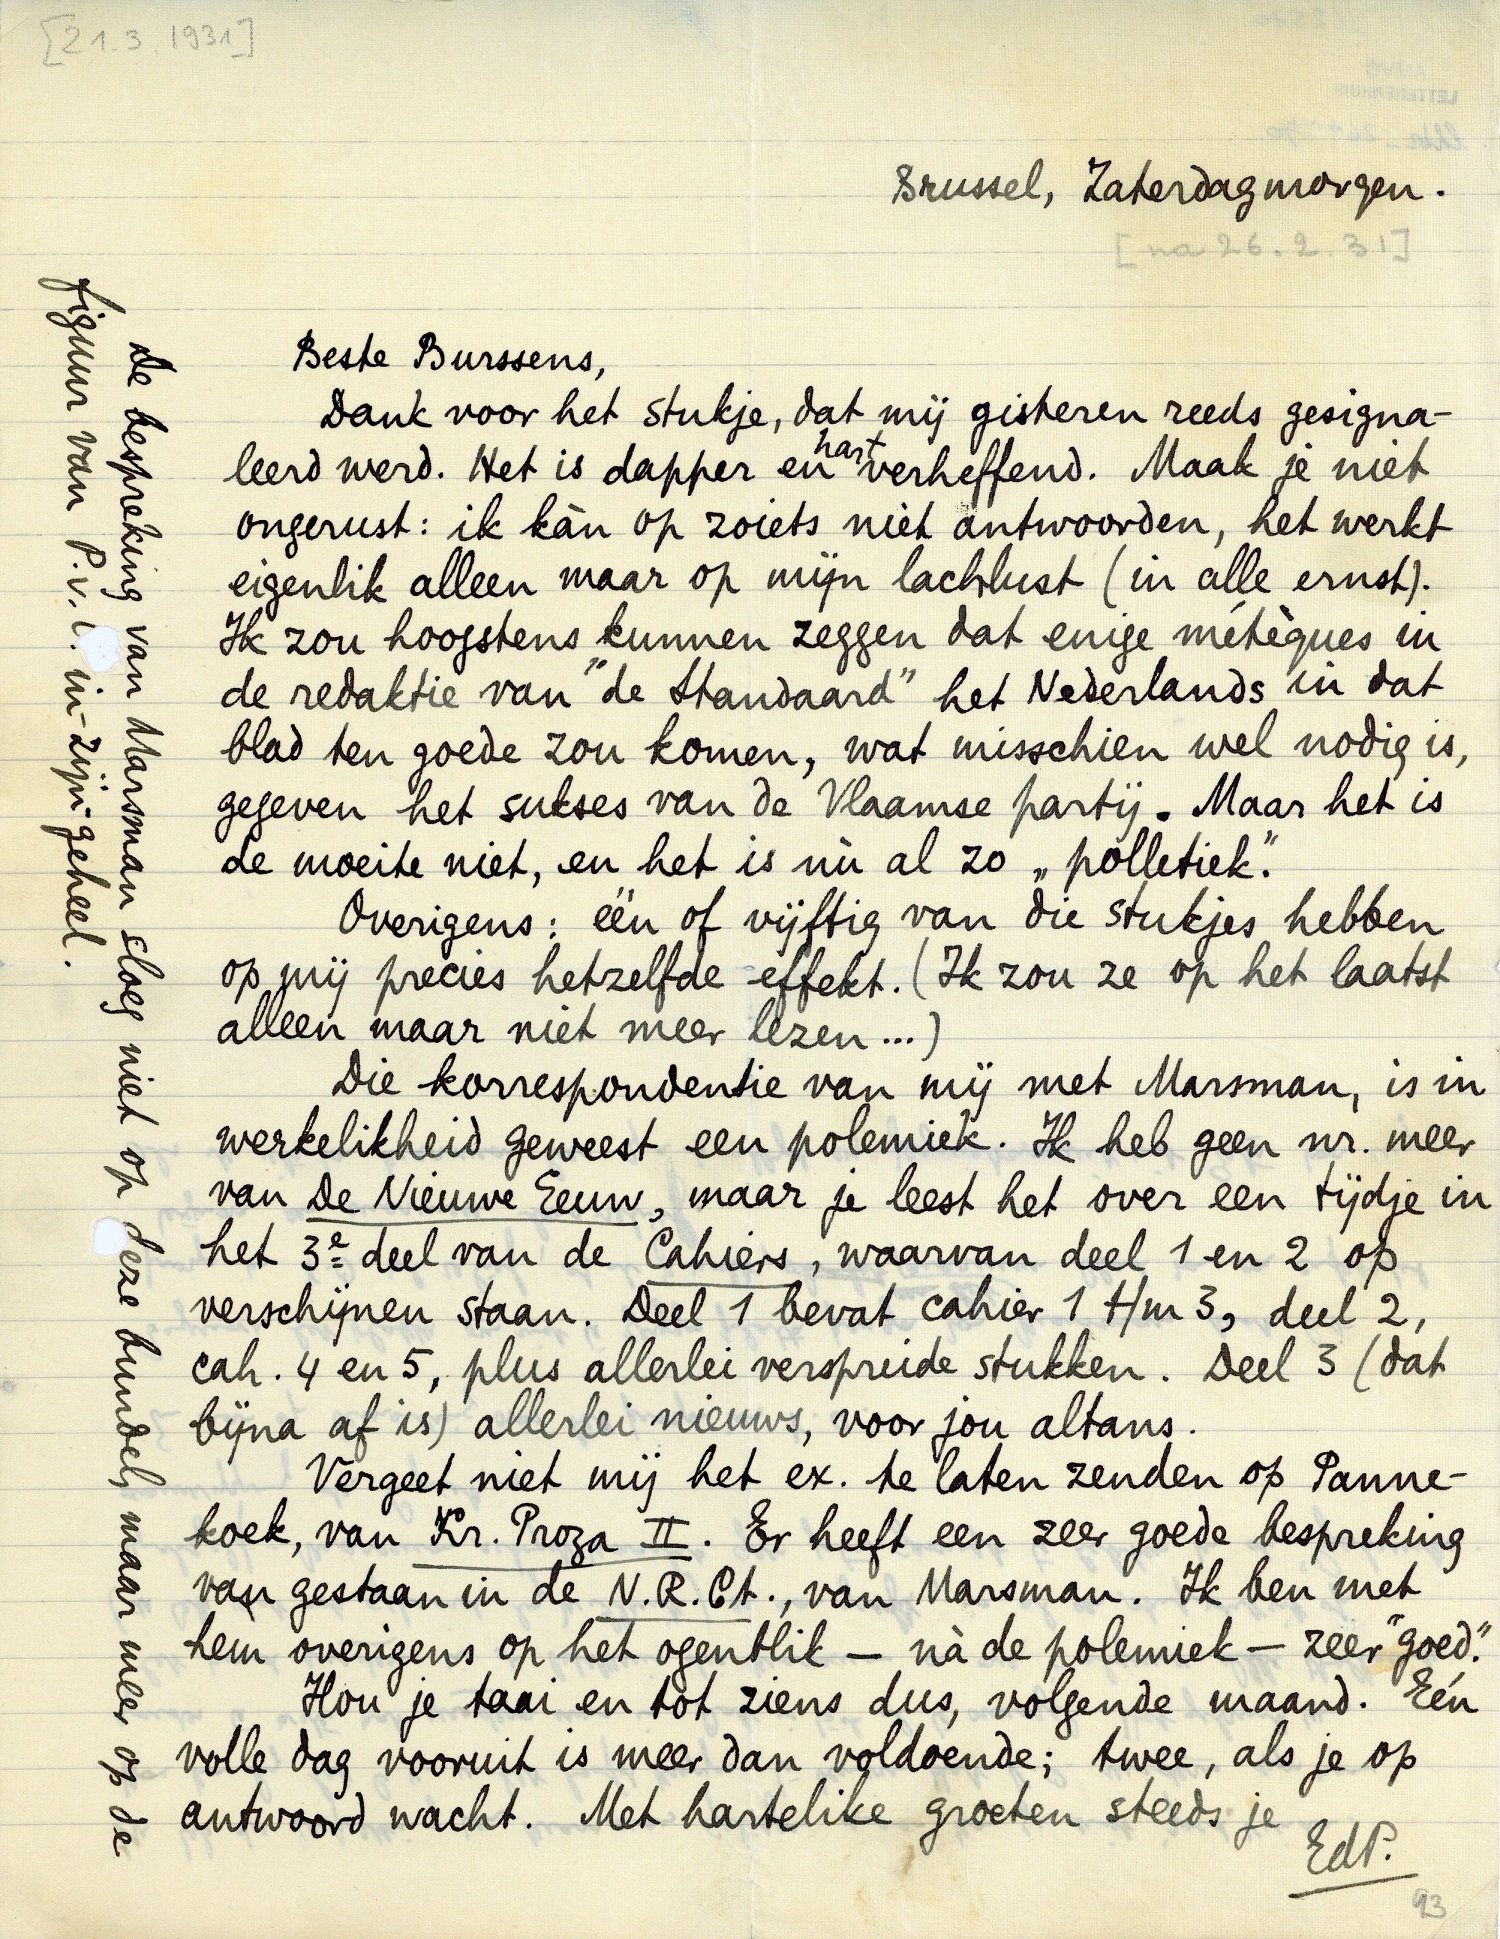 [21.3.1931]
Brussel, Zaterdagmorgen.
[na 26.2.31]
Beste Burssens,
Dank voor het stukje, dat mij gisteren reeds gesigna-
leerd werd. Het is dapper en hartverheffend. Maak je niet
ongerust: ik kàn op zoiets niet antwoorden, het werkt
eigenlik alleen maar op mijn lachlust (in alle ernst).
Ik zou hoogstens kunnen zeggen dat enige métèques in
de redaktie van "de Standaard" het Nederlands in dat
blad ten goede zou komen, wat misschien wel nodig is,
gegeven het sukses van de Vlaamse partij. Maar het is
de moeite niet, en het is nù al zo „polletiek".
Overigens: één of vijftig van die stukjes hebben
op mij precies hetzelfde effekt. (Ik zou ze op het laatst
alleen maar niet meer lezen...)
Die korrespondentie van mij met Marsman, is in
werkelikheid geweest een polemiek. Ik heb geen nr. meer
van De Nieuwe Eeuw, maar je leest het over een tijdje in
het 3e deel van de Cahiers, waarvan deel 1 en 2 op
verschijnen staan. Deel 1 bevat cahier 1 t/m 3, deel 2,
cah. 4 en 5, plus allerlei verspreide stukken. Deel 3 (dat
bijna af is) allerlei nieuws, voor jou altans.
Vergeet niet mij het ex. te laten zenden op Panne-
koek, van Kr. Proza II. Er heeft een zeer goede bespreking
van gestaan in de N.R.Ct., van Marsman. Ik ben met
hem overigens op het ogenblik — nà de polemiek — zeer "goed".
Hou je taai en tot ziens dus, volgende maand. Eén
volle dag vooruit is meer dan voldoende; twee, als je op
antwoord wacht. Met hartelike groeten steeds je
EdP.
93
De bespreking van Marsman sloeg niet op deze bundel, maar meer op de
figuur van P.v.O. in-zijn-geheel.